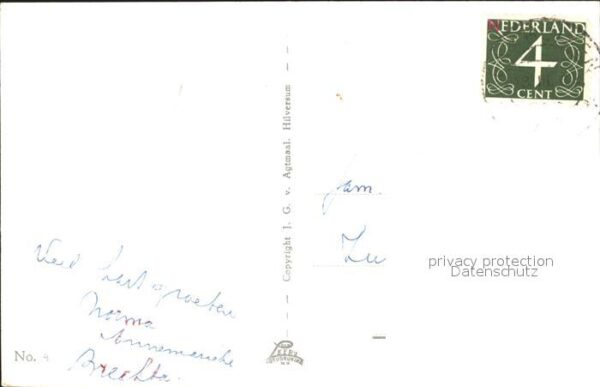 NEDERLAND
4
CENT
Copyright J. G. v. Agtmaal. Hilversum
Fam.
privacy protection
Datenschutz
Veel hart. groeten
Norma
Annemarieke
No.